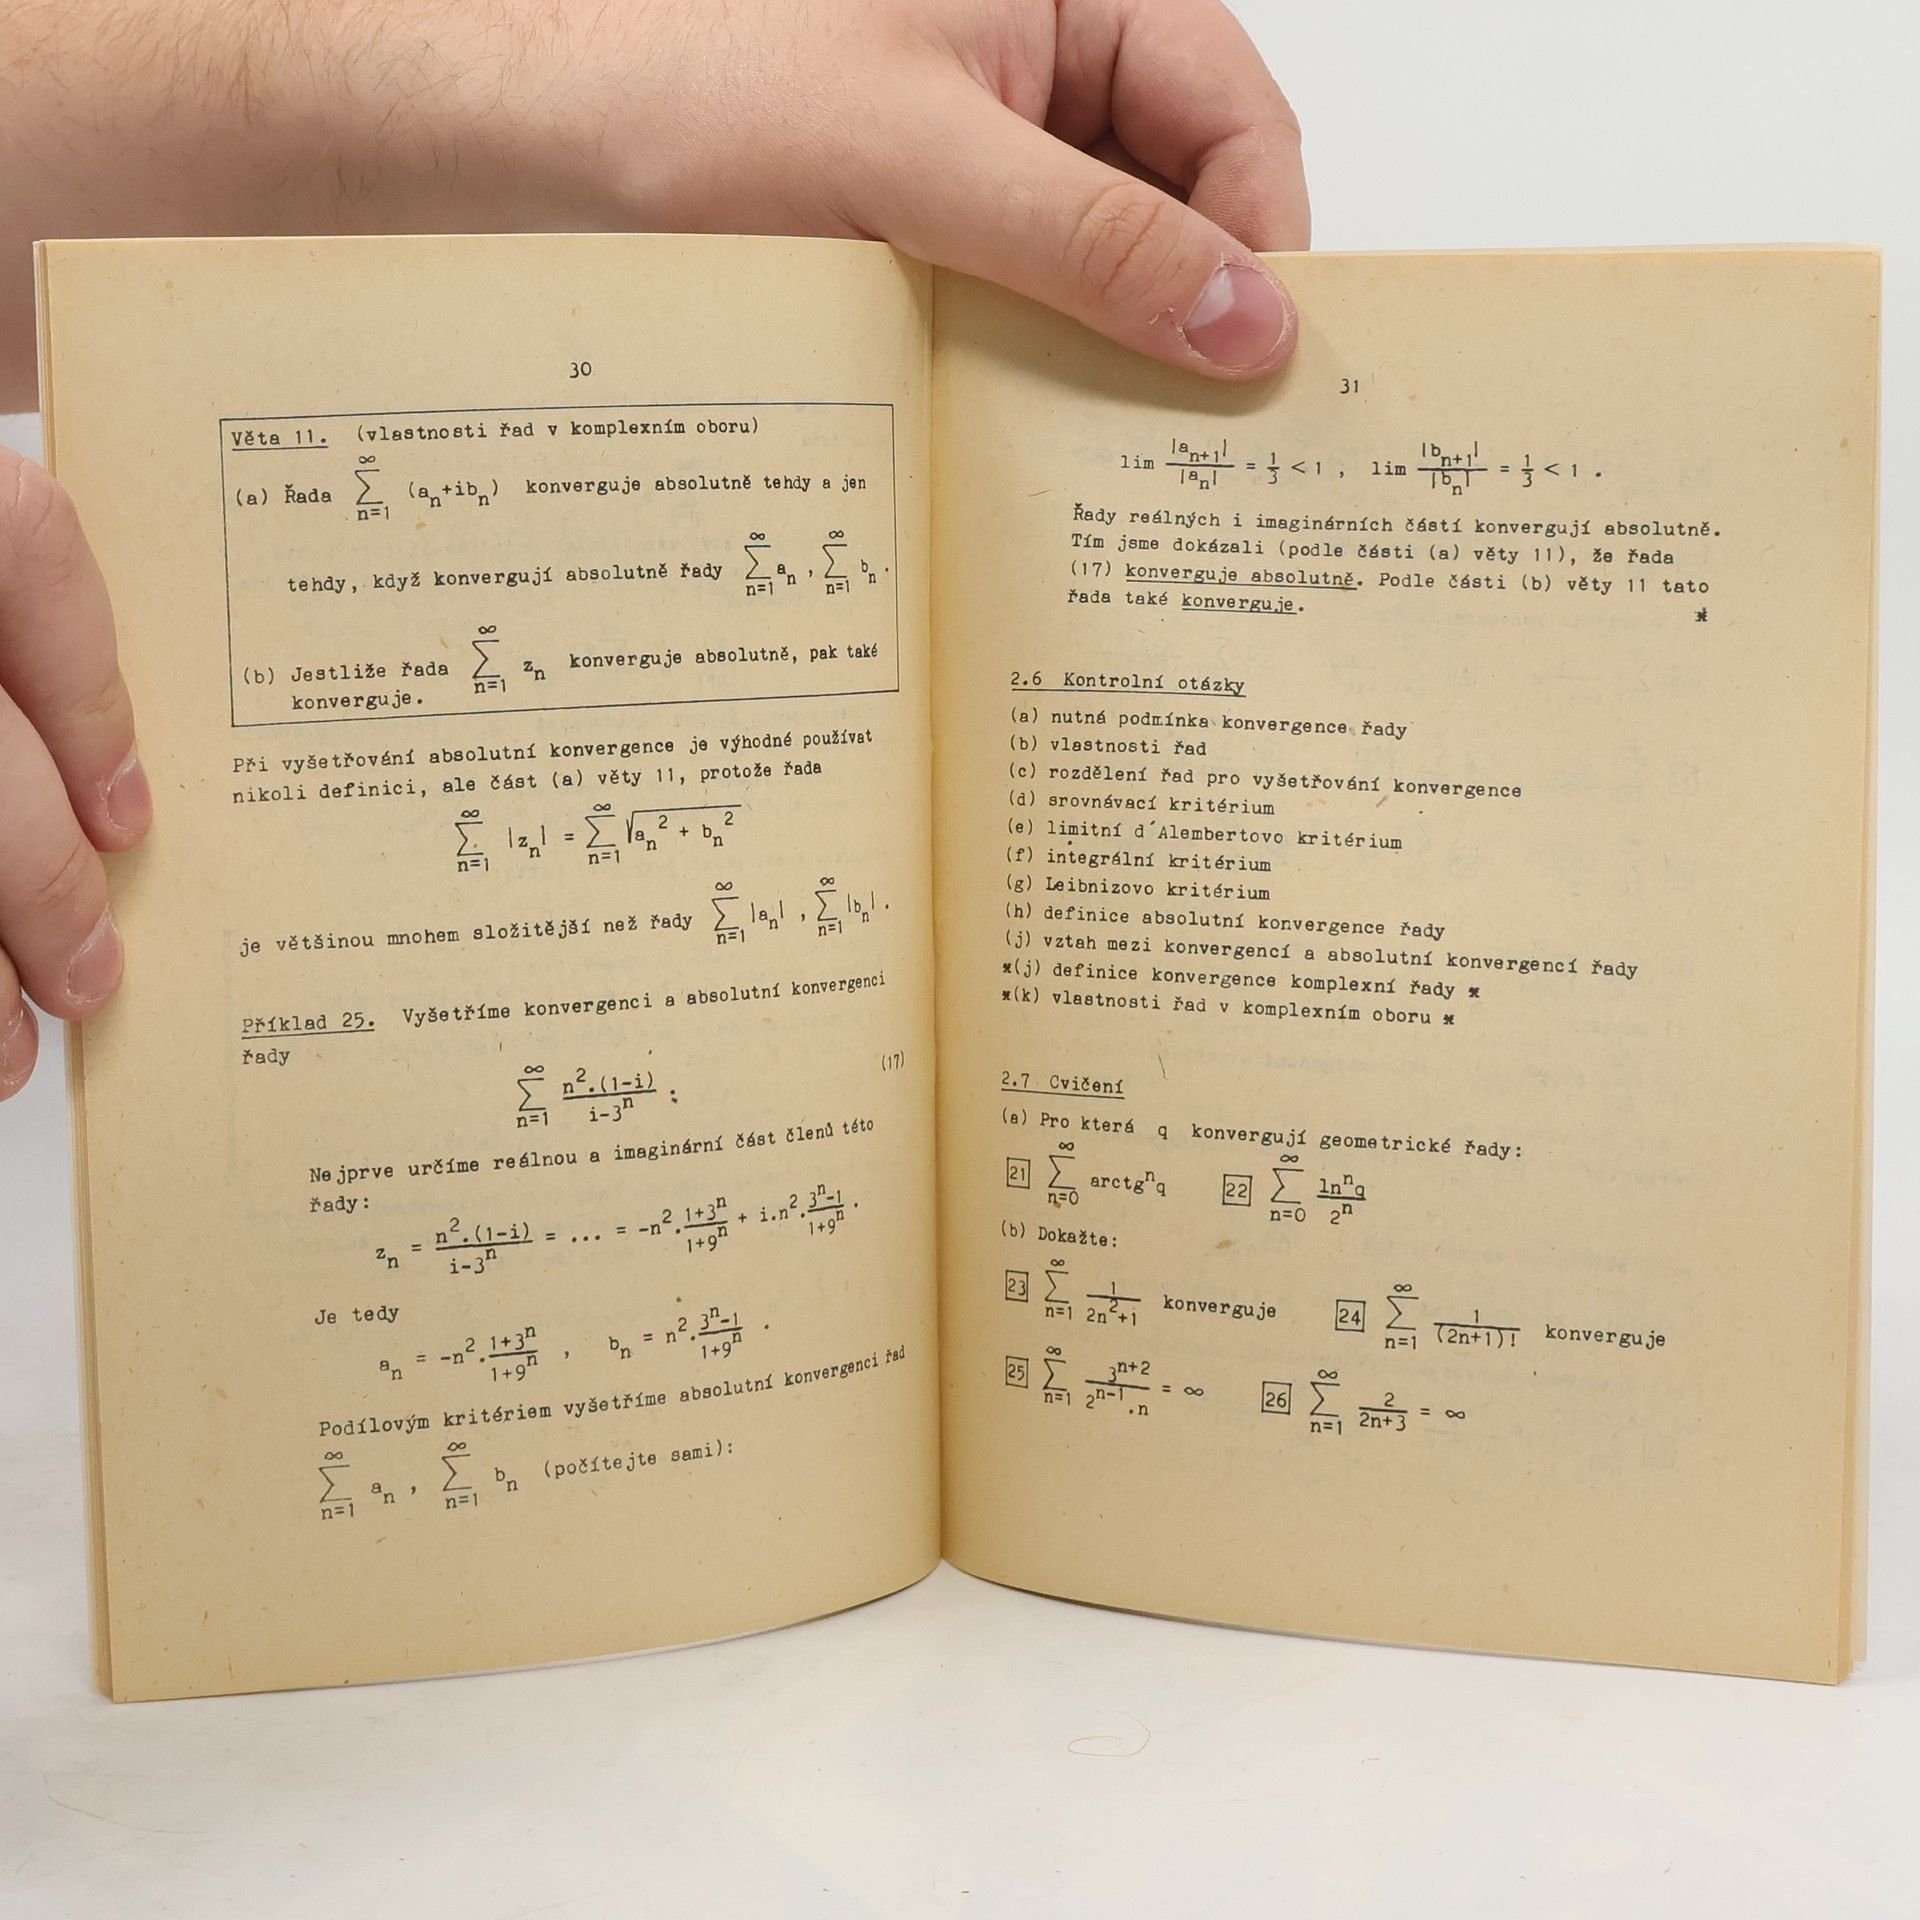 30
Věta 11. (vlastnosti řad v komplexním oboru)
(a) Řada ∑_{n=1}^{∞} (a_n+ib_n) konverguje absolutně tehdy a jen
tehdy, když konvergují absolutně řady ∑_{n=1}^{∞} a_n , ∑_{n=1}^{∞} b_n .
(b) Jestliže řada ∑_{n=1}^{∞} z_n konverguje absolutně, pak také
konverguje.
Při vyšetřování absolutní konvergence je výhodné používat
nikoli definici, ale část (a) věty 11, protože řada
∑_{n=1}^{∞} |z_n| = ∑_{n=1}^{∞} √(a_n^2 + b_n^2)
je většinou mnohem složitější než řady ∑_{n=1}^{∞} |a_n| , ∑_{n=1}^{∞} |b_n| .
Příklad 25. Vyšetříme konvergenci a absolutní konvergenci
řady
∑_{n=1}^{∞} (n^2.(1-i))/(i-3^n) : (17)
Nejprve určíme reálnou a imaginární část členů této
řady:
z_n = (n^2.(1-i))/(i-3^n) = ... = -n^2.(1+3^n)/(1+9^n) + i.n^2.(3^n-1)/(1+9^n) .
Je tedy
a_n = -n^2.(1+3^n)/(1+9^n) , b_n = n^2.(3^n-1)/(1+9^n) .
Podílovým kritériem vyšetříme absolutní konvergenci řad
∑_{n=1}^{∞} a_n , ∑_{n=1}^{∞} b_n (počítejte sami):
31
lim |a_{n+1}|/|a_n| = 1/3 < 1 , lim |b_{n+1}|/|b_n| = 1/3 < 1 .
Řady reálných i imaginárních částí konvergují absolutně.
Tím jsme dokázali (podle části (a) věty 11), že řada
(17) konverguje absolutně. Podle části (b) věty 11 tato
řada také konverguje. *
2.6 Kontrolní otázky
(a) nutná podmínka konvergence řady
(b) vlastnosti řad
(c) rozdělení řad pro vyšetřování konvergence
(d) srovnávací kritérium
(e) limitní d´Alembertovo kritérium
(f) integrální kritérium
(g) Leibnizovo kritérium
(h) definice absolutní konvergence řady
(j) vztah mezi konvergencí a absolutní konvergencí řady
*(j) definice konvergence komplexní řady *
*(k) vlastnosti řad v komplexním oboru *
2.7 Cvičení
(a) Pro která q konvergují geometrické řady:
21 ∑_{n=0}^{∞} arctg^n q 22 ∑_{n=0}^{∞} (ln^n q)/(2^n)
(b) Dokažte:
23 ∑_{n=1}^{∞} 1/(2n^2+1) konverguje 24 ∑_{n=1}^{∞} 1/((2n+1)!) konverguje
25 ∑_{n=1}^{∞} (3^{n+2})/(2^{n-1}.n) = ∞ 26 ∑_{n=1}^{∞} 2/(2n+3) = ∞